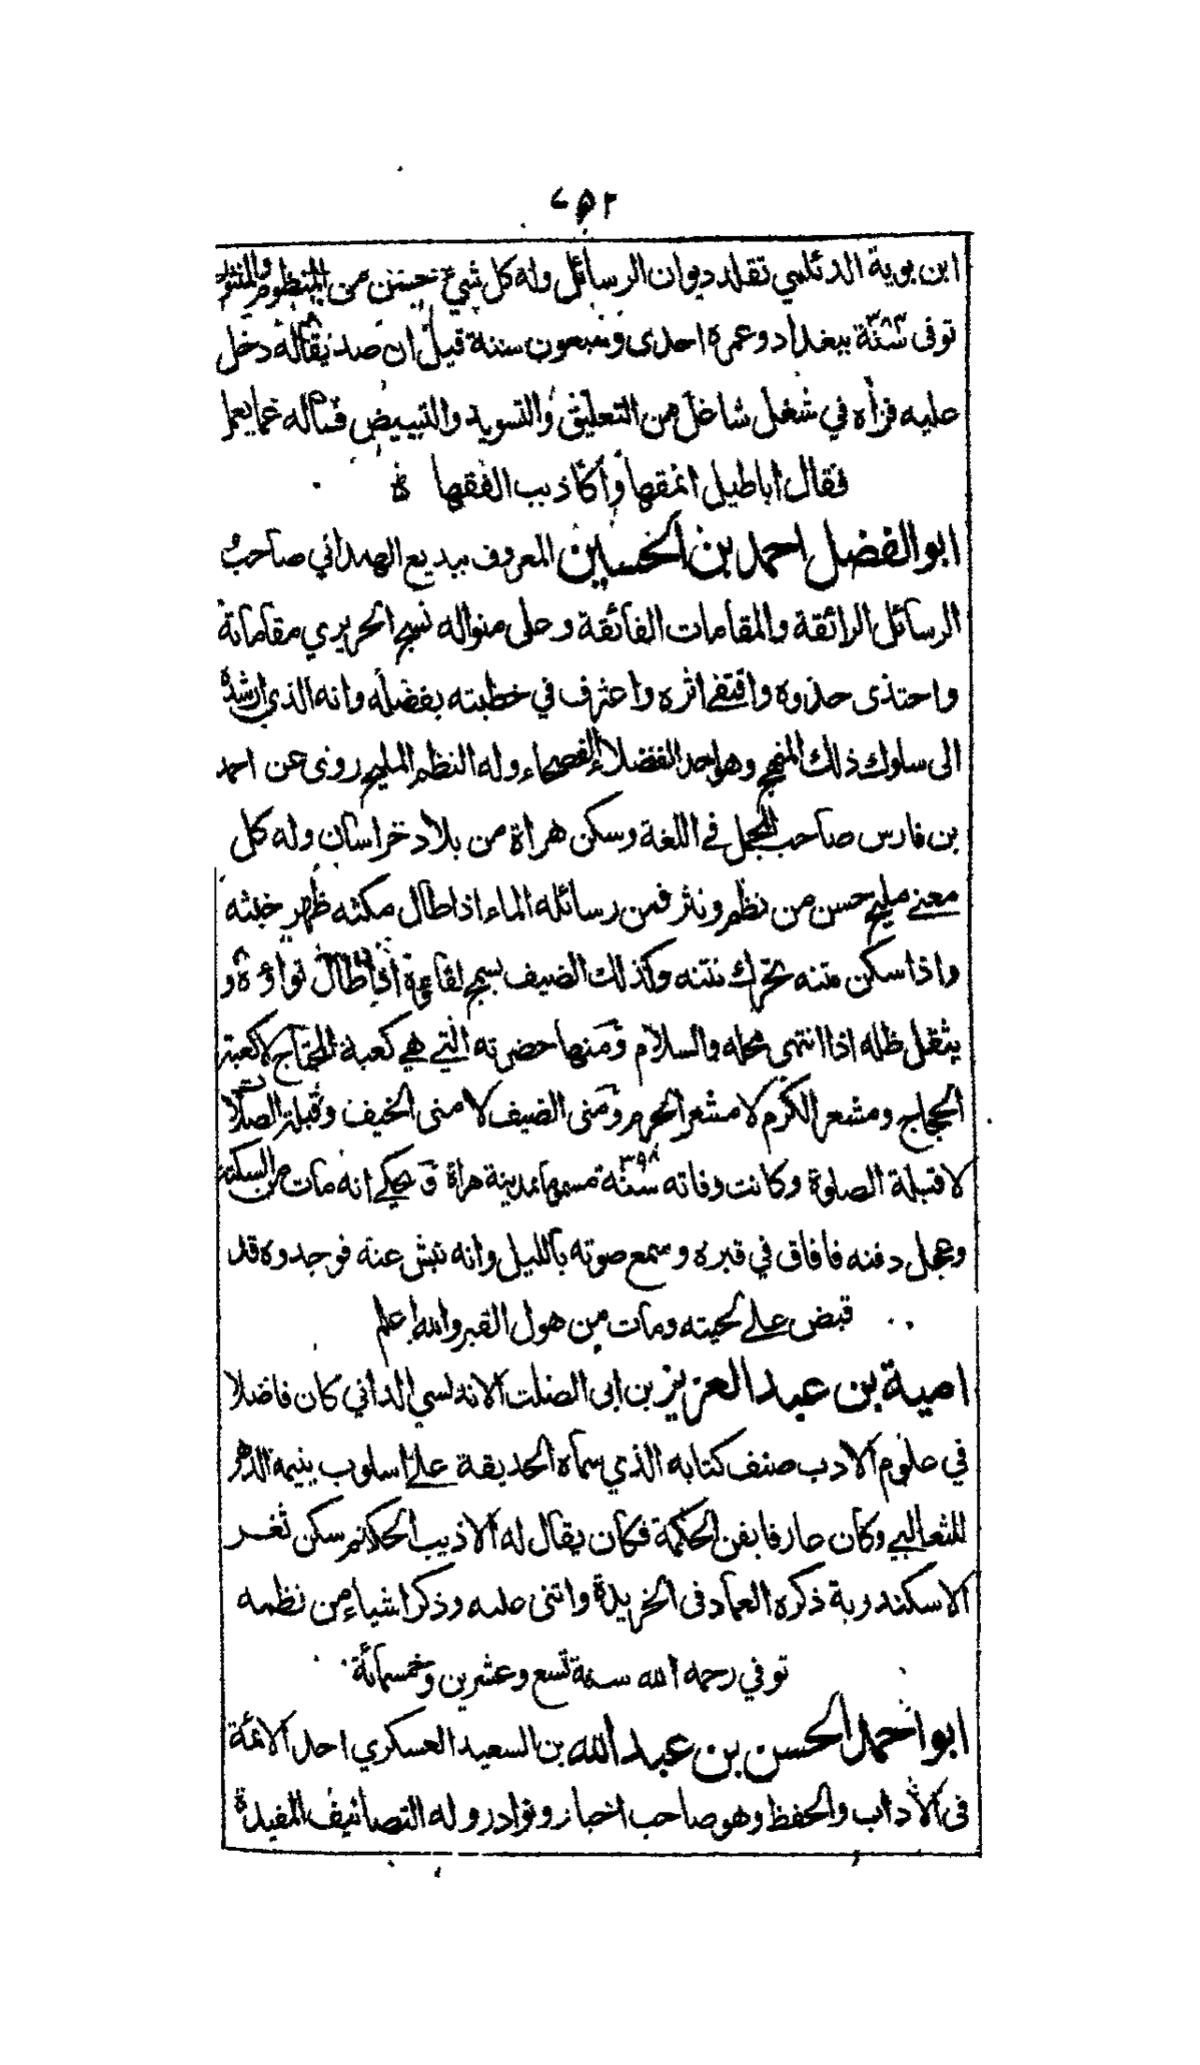 ٧٥٢
ابن بوية الدئلمي تقلد ديوان الرسائل وله كل شيئ حسن من المنظوم والمنثور
توفى سنة ٣٨٣ ببغداد وعمره احدى وسبعون سنة قيل ان صديقاله دخل
عليه فرأه في شغل شاغل من التعليق والتسويد والتبييض فسأله عما يعمل
فقال اباطيل انمقها وأكاذيب الفقها
ابو الفضل احمد بن الحسين المعروف ببديع الهمداني صاحب
الرسائل الرائقة والمقامات الفائقة وعلى منواله نسج الحريري مقاماتة
واحتذى حذوه واقتفے اثره واعترف في خطبته بفضله وانه الذي ارشده
الى سلوك ذلك المنهج وهو احد الفضلاء الفصحاء وله النظم المليح روى عن احمد
بن فارس صاحب المجمل فے اللغة وسكن هراة من بلاد خراسان وله كل
معنے مليح حسن من نظم ونثر فمن رسائله الماء اذا طال مكثه ظهر خبثه
واذا سكن متنه تحرك نتنه وكذلك الضيف يسمج لقاءه اذا طال ثواؤه و
يثقل ظله اذا انتهى محله والسلام ومنها حضرته التي هي كعبة المحتاج لا كعبة
الحجاج ومشعر الكرم لا مشعر الحرم ومنى الضيف لا منى الخيف وقبلة الصلات
لا قبلة الصلوة وكانت وفاته سنة ٣٩٨ مسموما بمدينة هراة و حكي انه مات من السكتة
وعجل دفنه فافاق في قبره وسمع صوته بالليل وانه نبش عنه فوجدوه قد
قبض علے لحيته ومات من هول القبر والله اعلم
امية بن عبد العزيز بن ابى الصلت الاندلسي الداني كان فاضلا
في علوم الادب صنف كتابه الذي سماه الحديقة علے اسلوب يتيمة الدهر
للثعالبي وكان عارفا بفن الحكمة فكان يقال له الاديب الحكيم سكن ثغر
الاسكندرية ذكره العماد فى الخريدة واثنى عليه وذكر اشياء من نظمه
توفي رحمه الله سنة تسع وعشرين وخمسمائة
ابو احمد الحسن بن عبد الله بن السعيد العسكري احد الائمة
فى الاداب والحفظ وهو صاحب اخبار ونوادر وله التصانيف المفيدة